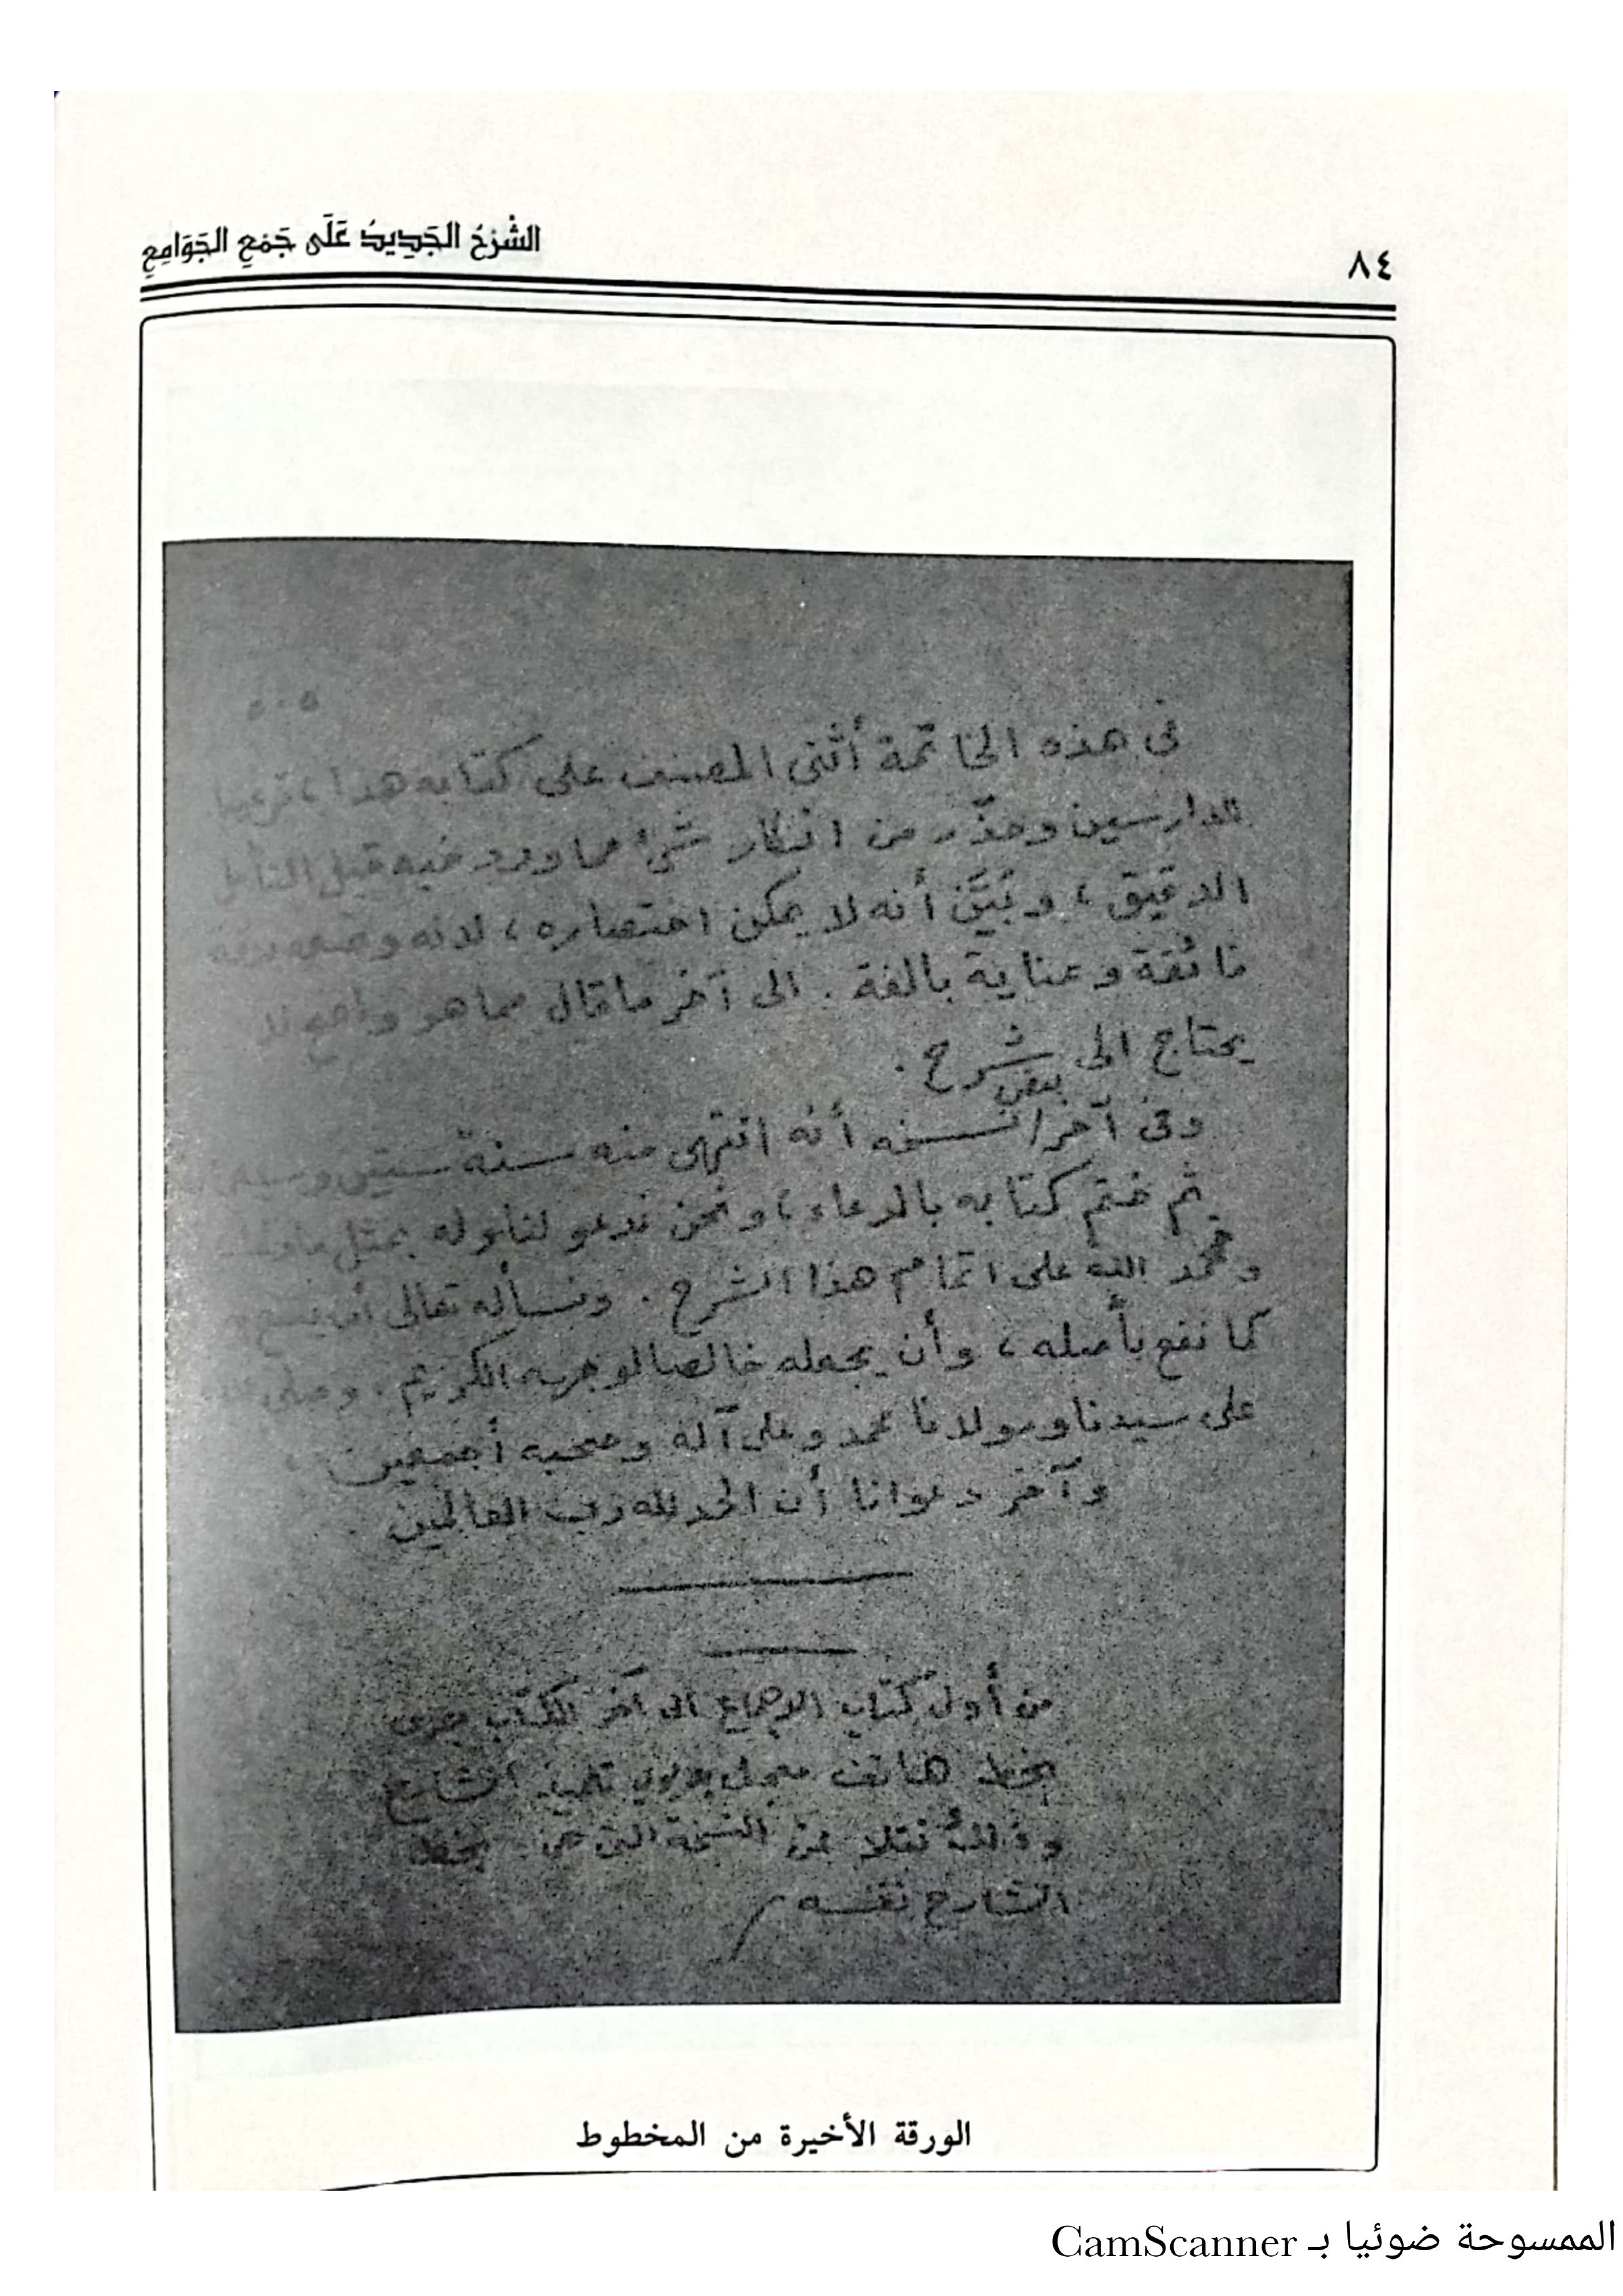 ٨٤
الشَّرْحُ الجَدِيدُ عَلَى جَمْعِ الجَوَامِعِ
٥٠٥
في هذه الخاتمة أثنى المصنف على كتابه هذا ،
الدارسين وحذّر من انكار شيء مما ورد فيه قبل التأمل
الدقيق ، وبَيَّنَ أنه لا يمكن اختصاره ، لأنه وضعه بدقة
فائقة وعناية بالغة . الى آخر ما قال مما هو واضح لا
يحتاج الى شرح .
وفي آخر بعض النسخه أنه انتهى منه سنة ستين وسبعمائة
ثم ختم كتابه بالدعاء ، ونحن ندعو لنا وله بمثل
ونحمد الله على اتمام هذا الشرح . ونسأله تعالى أن ينفع به
كما نفع بأصله ، وأن يجعله خالصا لوجهه الكريم . وصلى الله
على سيدنا ومولانا محمد وعلى آله وصحبه أجمعين
وآخر دعوانا أن الحمد لله رب العالمين
من أول كتاب الاجماع الى آخر الكتاب
بخط تلميذ الشارح
وذلك نقلا من النسخة التي هي بخط
الشارح نفسه
الورقة الأخيرة من المخطوط
الممسوحة ضوئيا بـ CamScanner